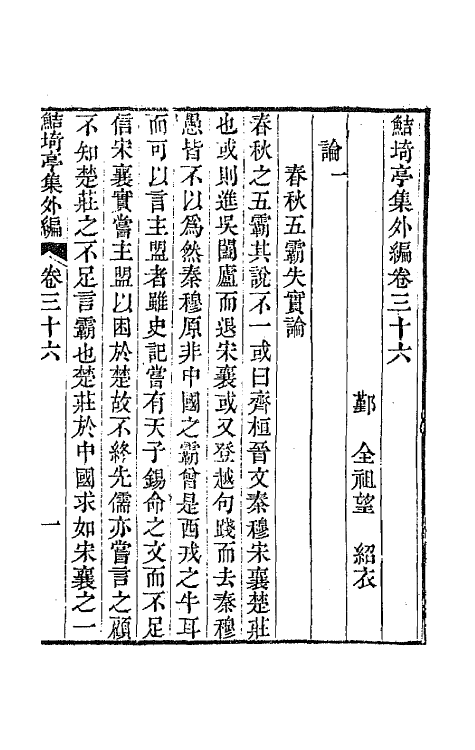 鮚埼亭集外編卷三十六
鄞　全祖望　紹衣
論一
春秋五霸失實論
春秋之五霸其說不一或曰齊桓晉文秦穆宋襄楚莊
也或則進吳闔廬而退宋襄或又登越句踐而去秦穆
愚皆不以爲然秦穆原非中國之霸曾是西戎之牛耳
而可以言主盟者雖史記嘗有天子錫命之文而不足
信宋襄實嘗主盟以困於楚故不終先儒亦嘗言之顧
不知楚莊之不足言霸也楚莊於中國求如宋襄之一
鮚埼亭集外編　卷三十六　一